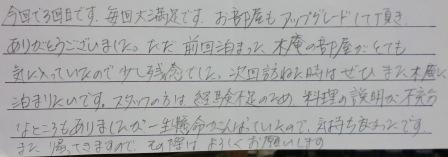 今回で3回目です。毎回大満足です。お部屋もアップグレードして頂き
ありがとうございました。ただ前回泊まった木庵の部屋がとても
気に入っていたので少し残念でした。次回訪ねた時はぜひまた木庵に
泊まりたいです。スタッフの方は、経験不足のため、料理の説明が不充分
なところもありましたが一生懸命がんばっていたので、気持ち良かったです。
また帰ってきますので、その際はよろしくお願いします